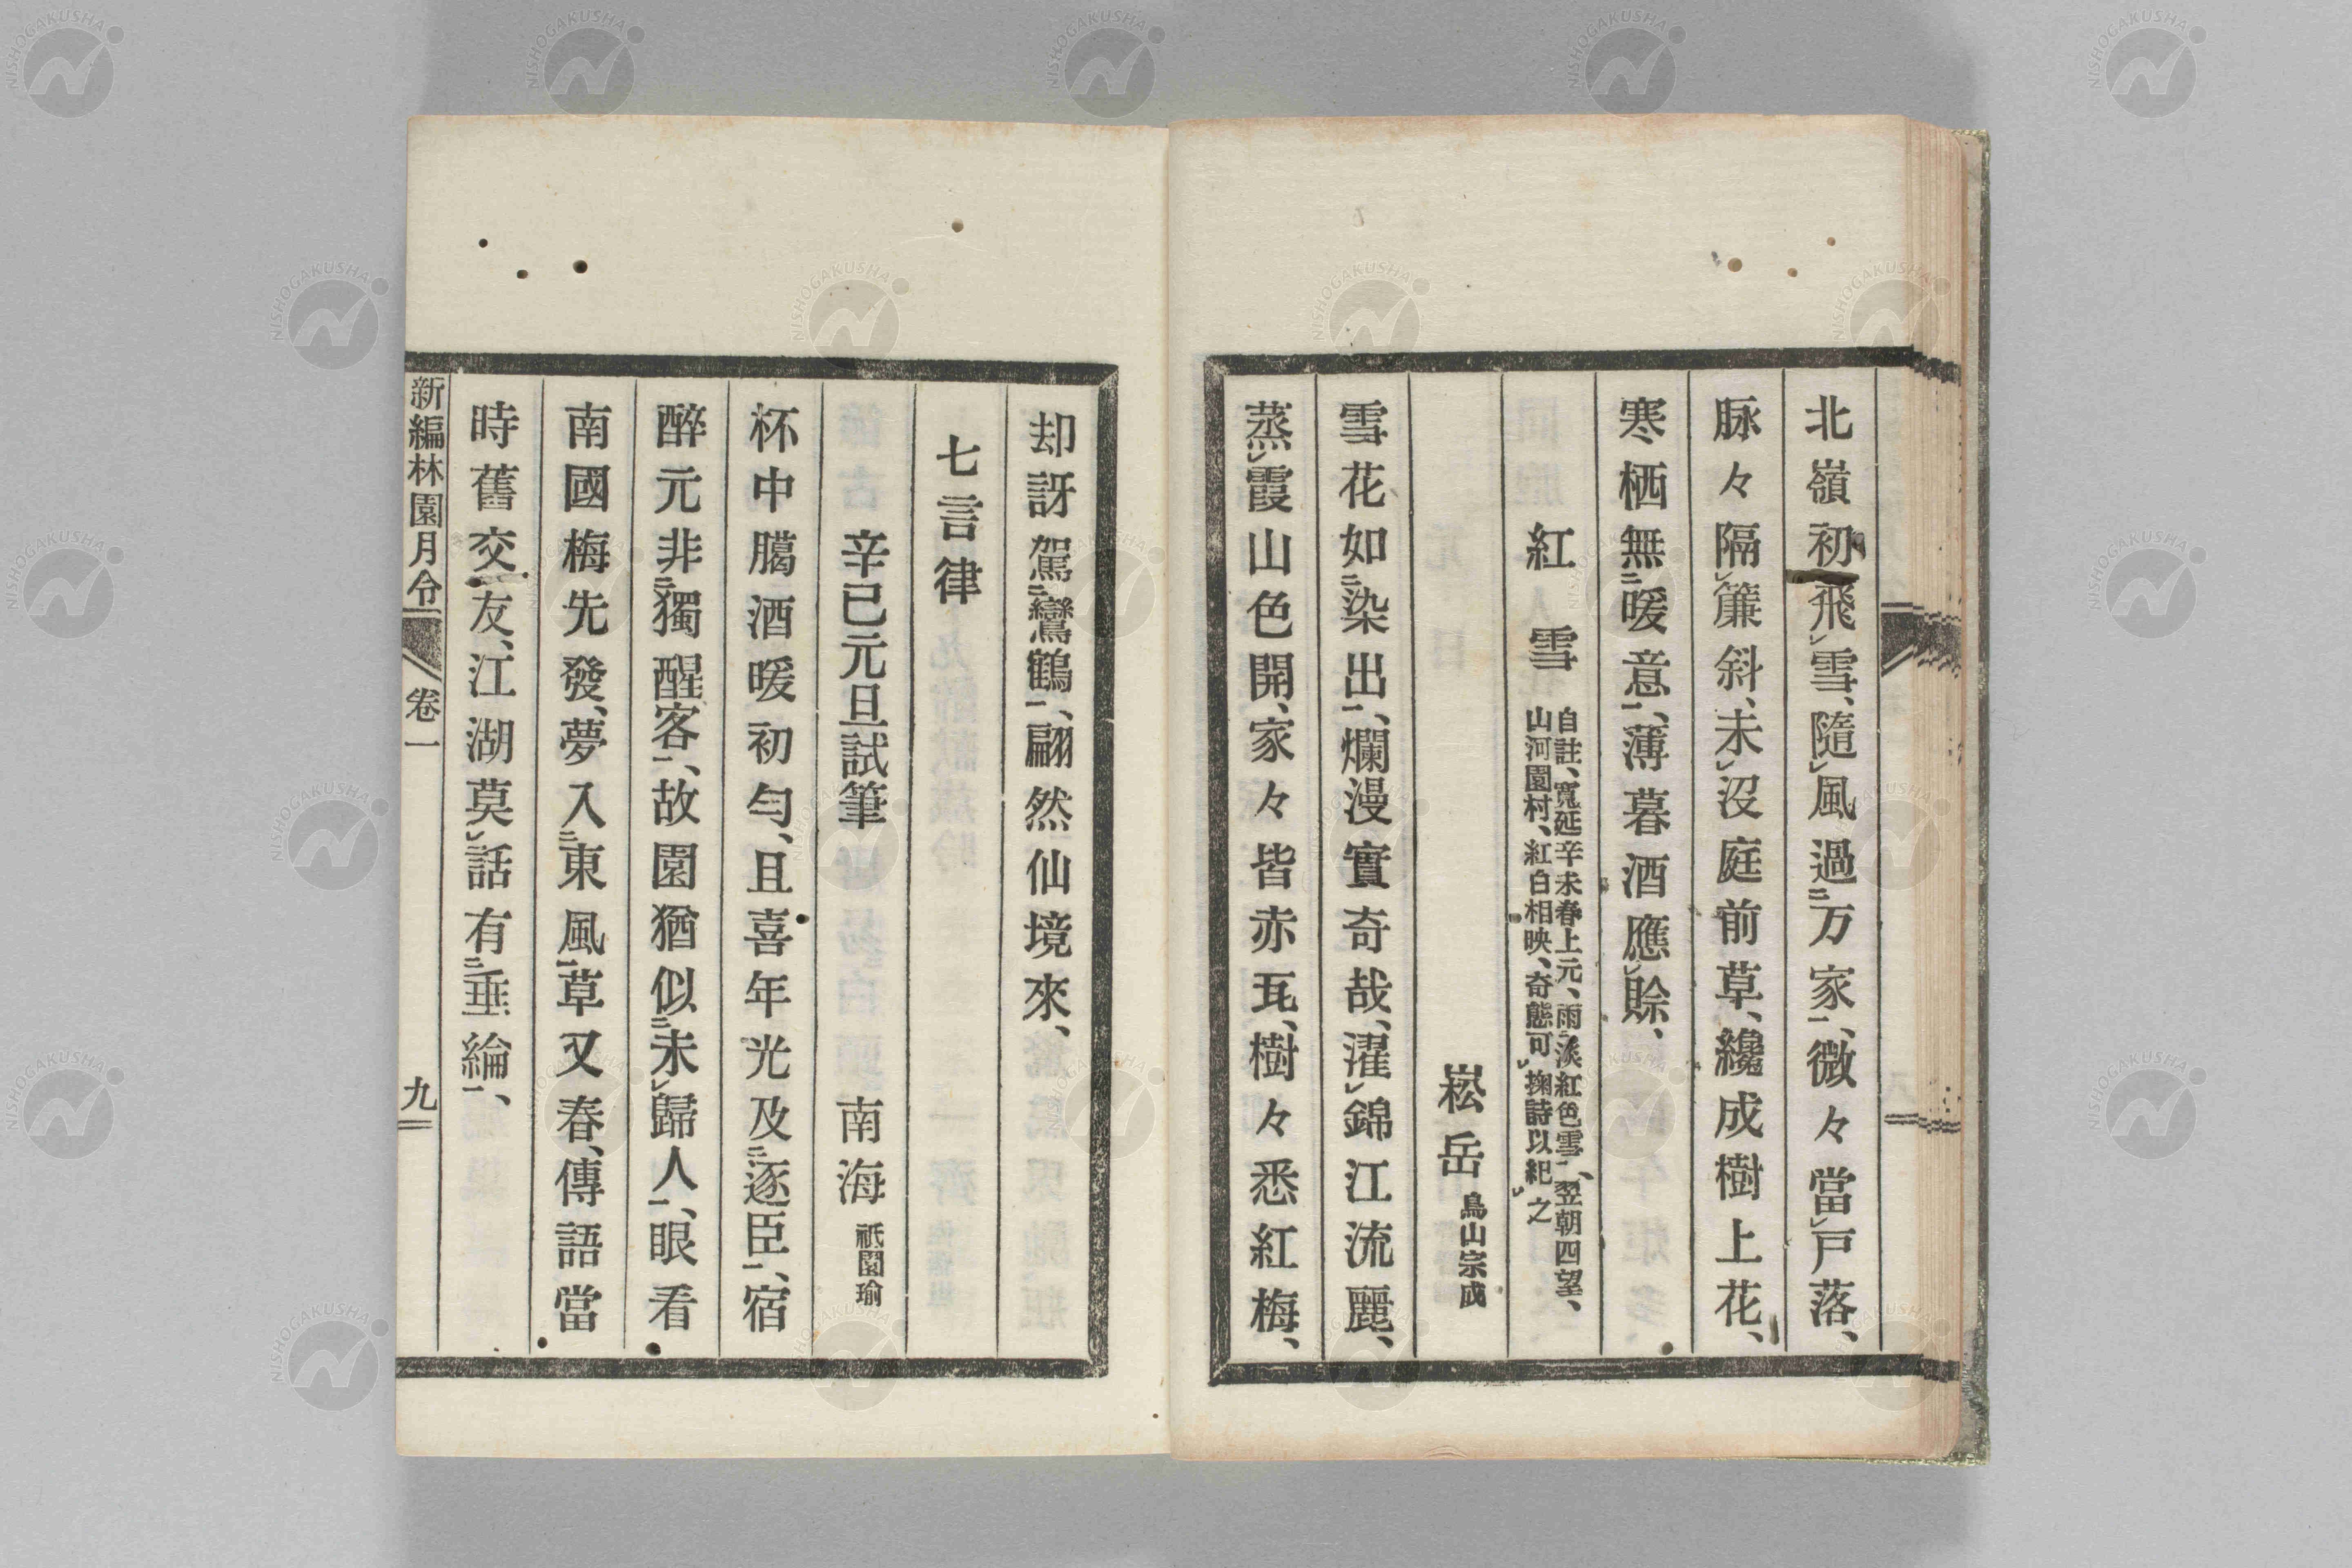 北嶺初飛㆑雪、隨㆑風過㆓万家㆒、微々當㆑戸落、
脉々隔㆑簾斜、未㆑沒庭前草、纔成樹上花、
寒栖無㆓暖意㆒、薄暮酒應㆑賖、
紅雪 自註、寬延辛未春上元、雨㆓淡紅色雪㆒、翌朝四望、
山河園村、紅白相映、奇態可㆑掬詩以紀㆑之
崧岳 鳥山宗成
雪花如㆓染出㆒、爛漫實奇哉、濯㆑錦江流麗、
蒸㆑霞山色開、家々皆赤瓦、樹々悉紅梅、
却訝駕㆓鸞鶴㆒、翩然仙境來、
七言律
辛巳元旦試筆 南海 祇園瑜
杯中臈酒暖初勻、且喜年光及㆓逐臣㆒、宿
醉元非㆓獨醒客㆒、故園猶似㆓未㆑歸人㆒、眼看
南國梅先發、夢入㆓東風㆒草又春、傳語當
時舊交友、江湖莫㆑話有㆓垂綸㆒、
新編林園月令 卷一 九
NISHOGAKUSHA